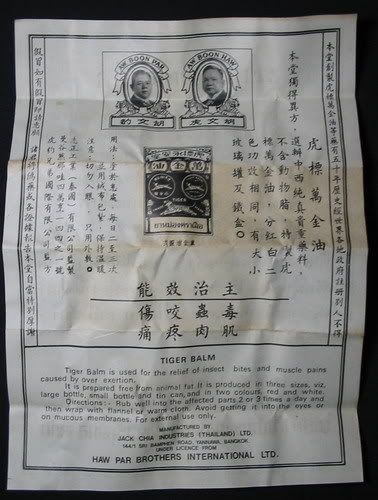 AW BOON PAR
AW BOON HAW
胡文豹
胡文虎
本堂創製虎標萬金油等藥有五十年歷史經世界各地政府註冊別人不得
本堂獨得異方
虎標萬金油
選辦中西純真貴重藥料，
不含動物脂，特製虎
標萬金油，分紅白二
色功效相同，有大小
玻璃罐及鐵盒。
TIGER
用法：塗於患處，每日二至三
並用絨布包紮，保持溫暖
注意：切勿入眼，只用外敷。
工業(泰國)有限公司監製
曼谷 一四四之一號
虎豹兄弟國際有限公司監方
假冒如有假冒即請 諸君 本堂自當特別厚謝
主治效能
毒蟲咬傷
肌肉疼痛
TIGER BALM
Tiger Balm is used for the relief of insect bites and muscle pains
caused by over exertion.
It is prepared free from animal fat It is produced in three sizes, viz,
large bottle, small bottle and tin can, and in two colours, red and white.
Directions:- Rub well into the affected parts 2 or 3 times a day and
then wrap with flannel or warm cloth. Avoid getting it into the eyes or
on mucous membranes. For external use only.
MANUFACTURED BY
JACK CHIA INDUSTRIES (THAILAND) LTD.
144/1 SRI BAMPHEN ROAD, YANNAWA, BANGKOK.
UNDER LICENCE FROM
HAW PAR BROTHERS INTERNATIONAL LTD.